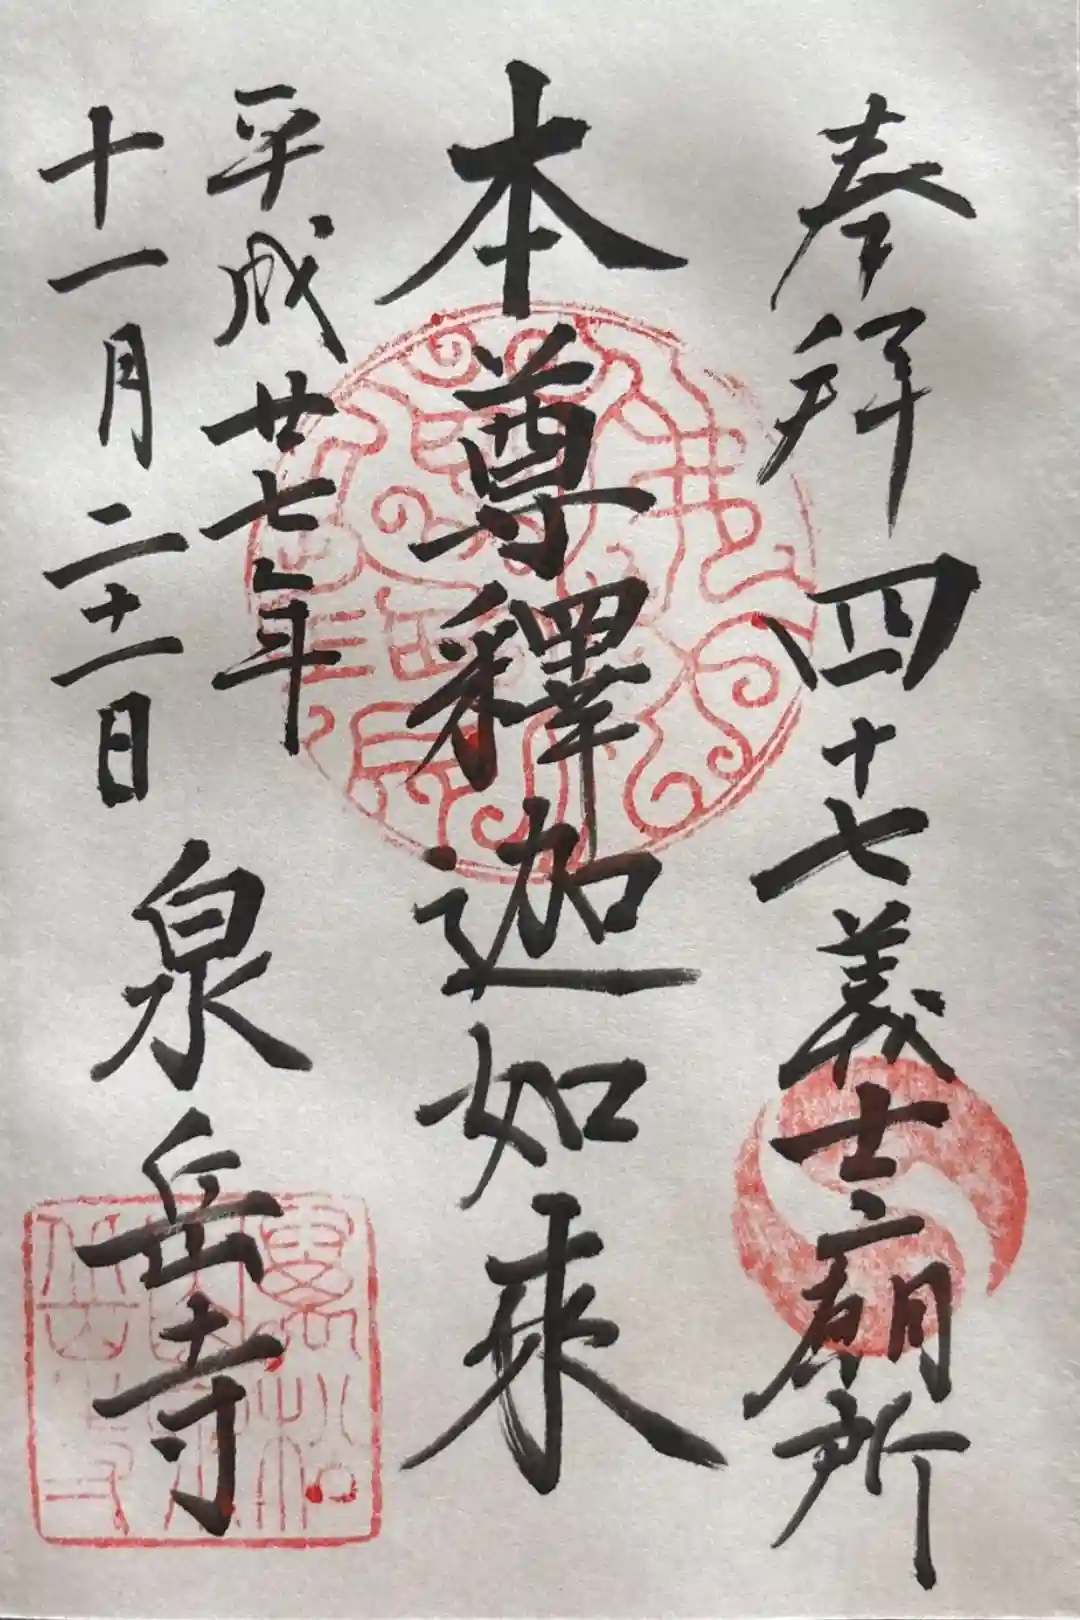 奉拜 四十七義士廟所
本尊釋迦如來
平成廿七年
十一月二十一日 泉岳寺